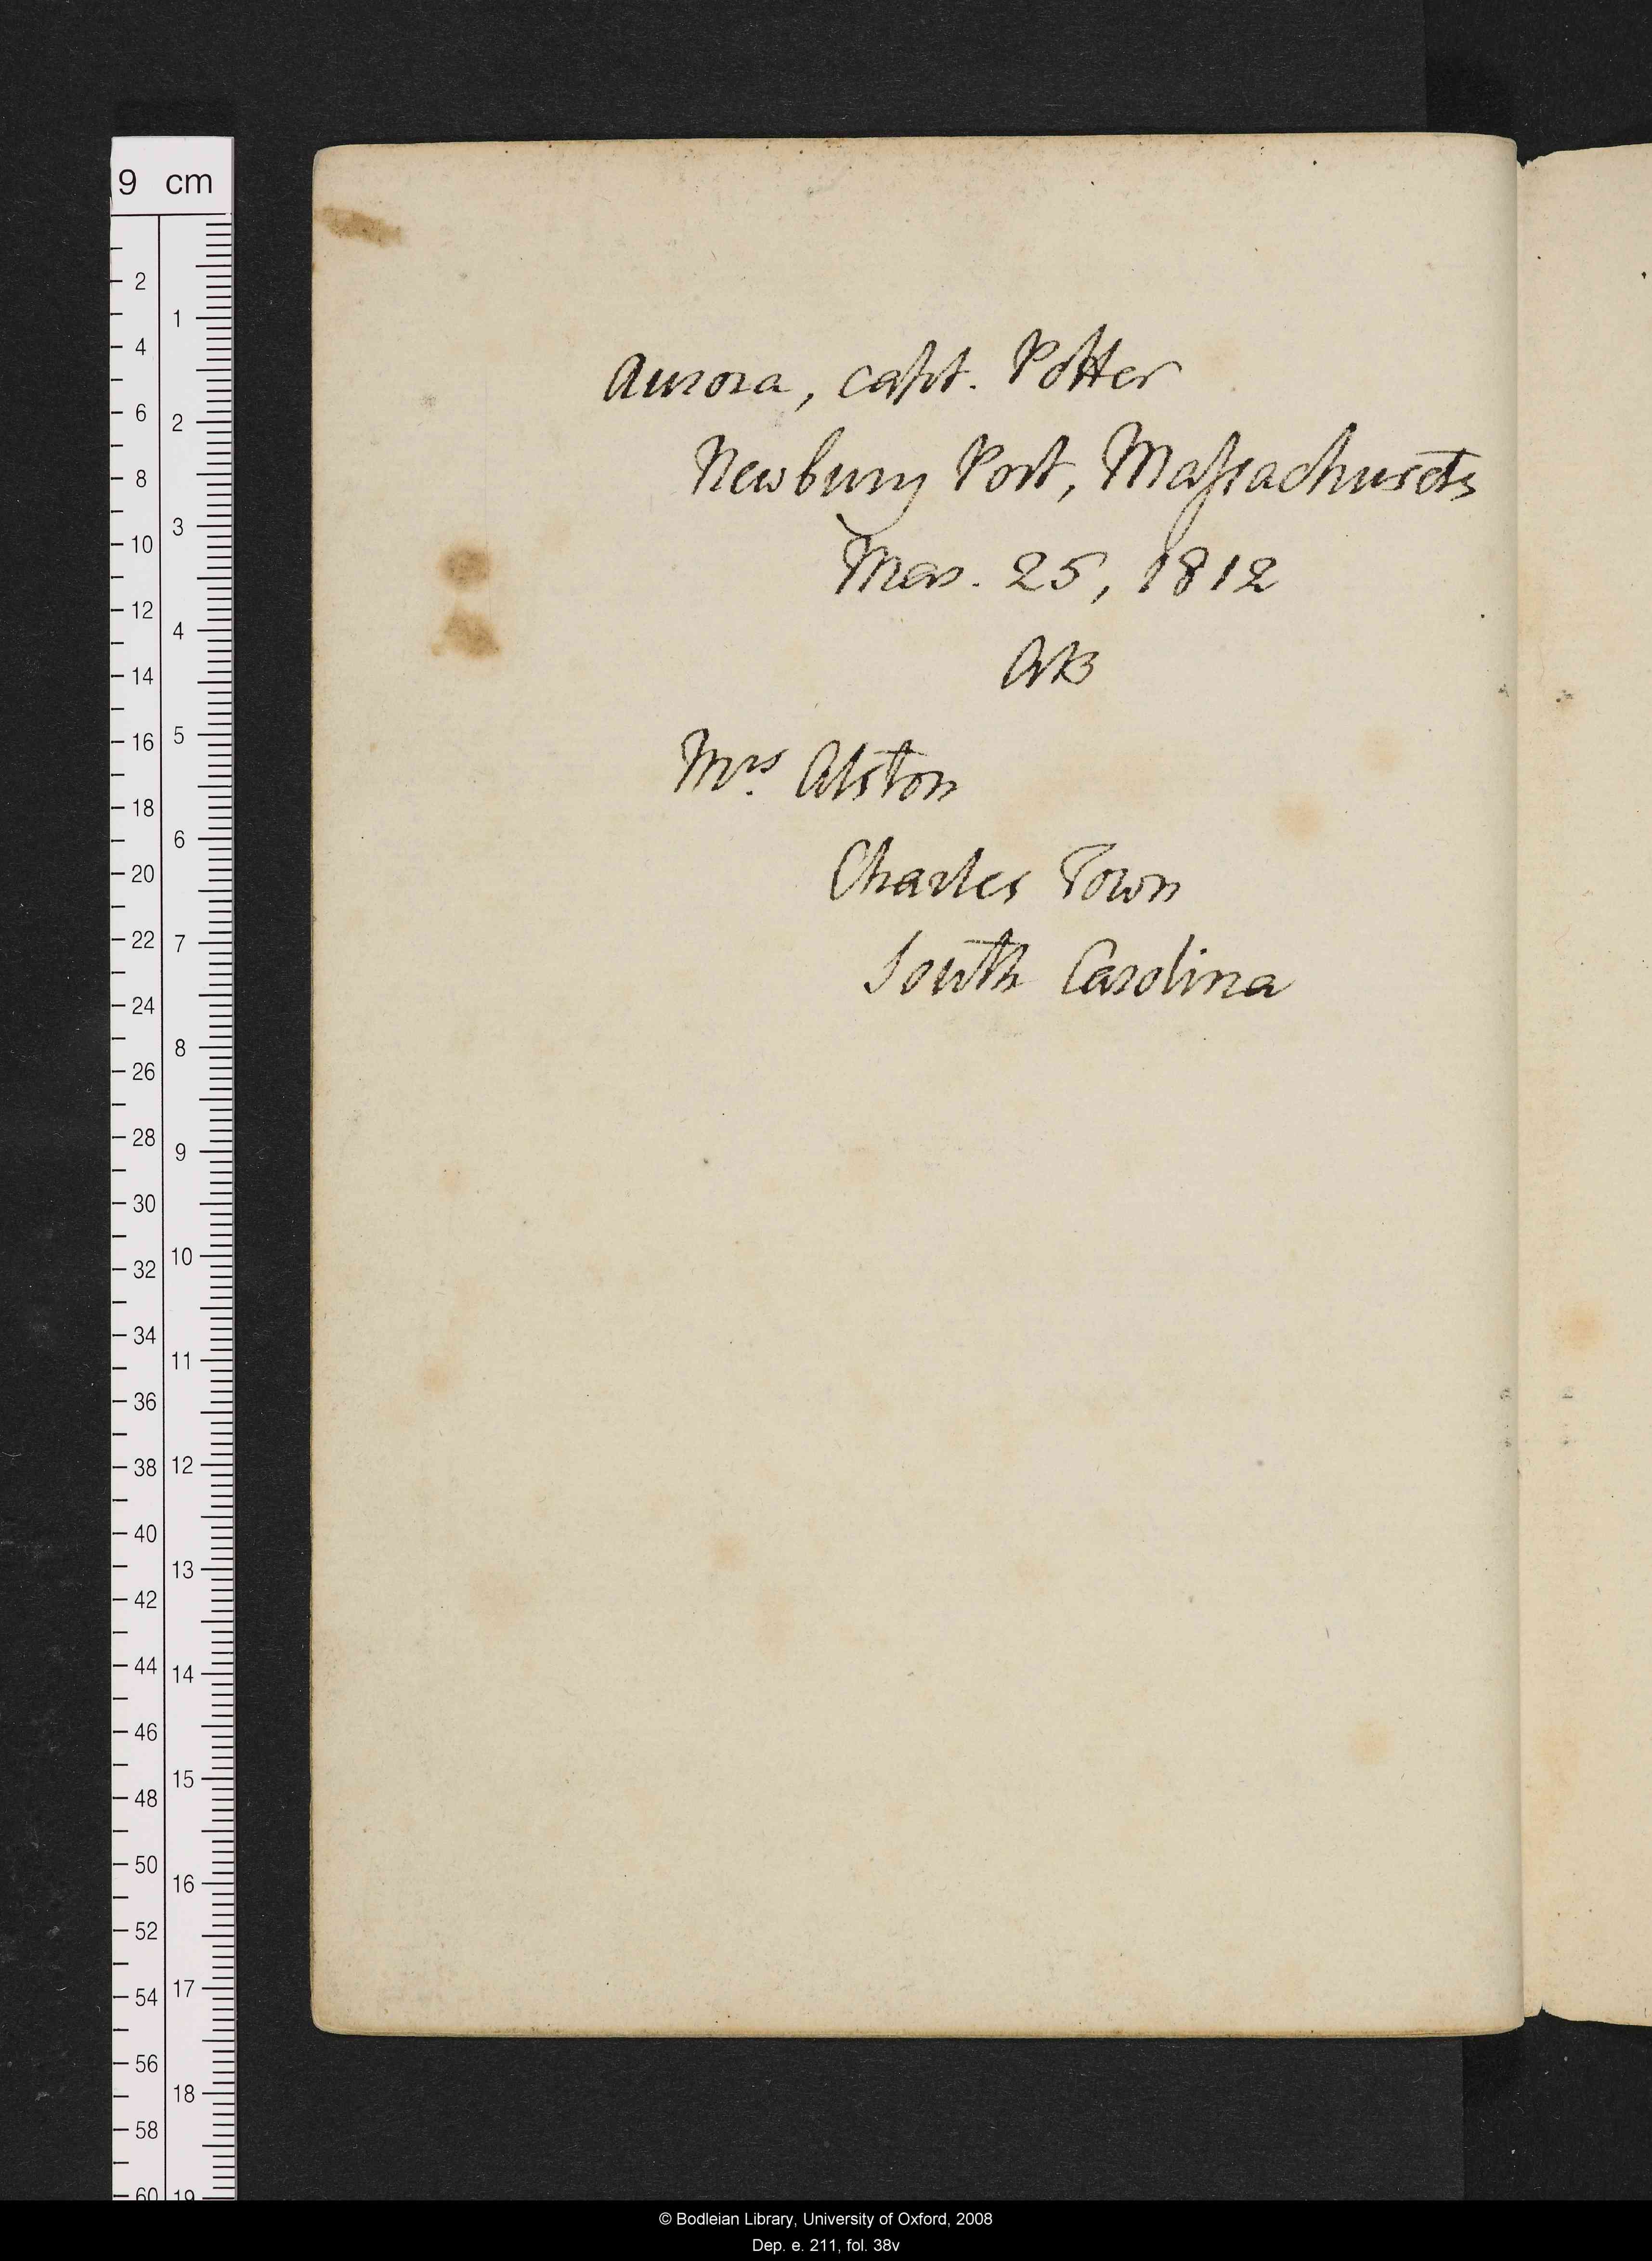 Aurora, capt. Potter
Newbury Port, Massachusets
Mar. 25, 1812
AB
Mrs. Alston
Charles Town
South Carolina
9 cm
2
4
6
8
10
12
14
16
18
20
22
24
26
28
30
32
34
36
38
40
42
44
46
48
50
52
54
56
58
60
1
2
3
4
5
6
7
8
9
10
11
12
13
14
15
16
17
18
19
© Bodleian Library, University of Oxford, 2008
Dep. e. 211, fol. 38v